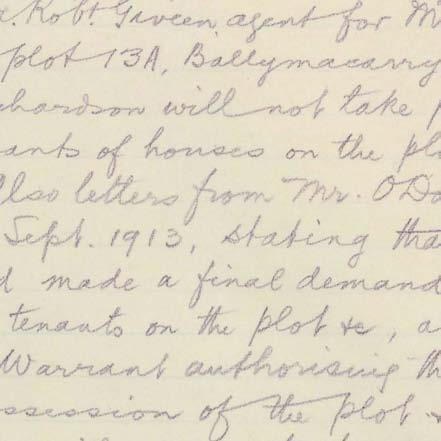 Robt. Giveen agent for M
plot 13A, Ballymacarry
chardson will not take p
ants of houses on the pl
Also letters from Mr. O'Do
Sept. 1913, stating tha
d made a final demand
tenants on the plot &c, a
Warrant authorising th
ssession of the plot